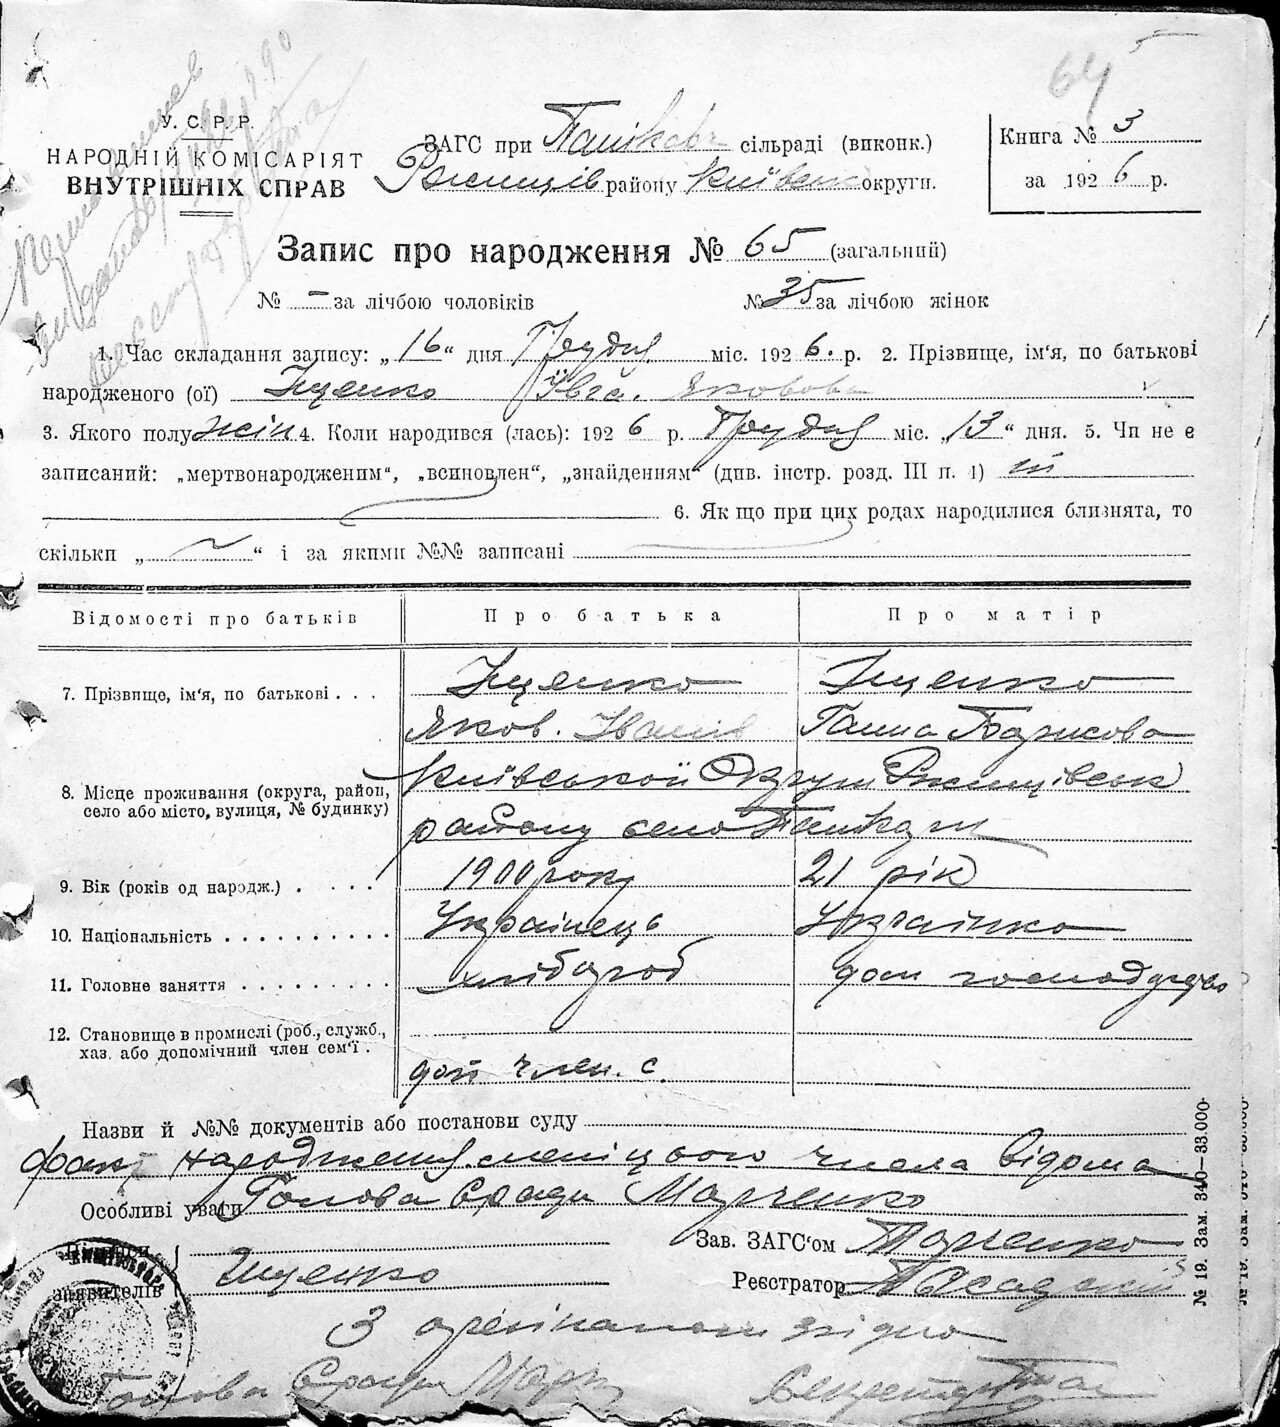 64
У. С. Р. Р.
НАРОДНІЙ КОМІСАРІЯТ
ВНУТРІШНІХ СПРАВ
ЗАГС при сільраді (виконк.)
Ржищів. району Київськ округи.
Книга № 3
за 1926 р.
Запис про народження № 65 (загальний)
№ – за лічбою чоловіків № 35 за лічбою жінок
1. Час складання запису: „16“ дня Грудня міс. 1926. р. 2. Прізвище, ім‘я, по батькові
народженого (ої) Іщенко Явга. Яковова
3. Якого полу жін. 4. Коли народився (лась): 1926 р. Грудня міс. „13“ дня. 5. Чи не є
записаний: „мертвонародженим“, „всиновлен“, „знайденням“ (див. інстр. розд. III п. 1) ні
6. Як що при цих родах народилися близнята, то
скільки „ “ і за якими №№ записані
Відомості про батьків Про батька Про матір
7. Прізвище, ім‘я, по батькові . . . Іщенко Іщенко
Яков. Іванів Ганна Борисова
8. Місце проживання (округа, район, Київськой Округи Ржищівськ
село або місто, вулиця, № будинку) району село
9. Вік (років од народж.) . . . . 1900 року 21 рік
10. Національність . . . . . . . . . . Українець Українка
11. Головне заняття . . . . . . . . . хлібороб дом господарство
12. Становище в промислі (роб., служб.,
хаз. або допомічний член сем‘ї .
доп член. с.
Назви й №№ документів або постанови суду
факт народження числа відома
Особливі уваги Голова С.ради Марченко
Підписи
заявителів
Іщенко
Зав. ЗАГС‘ом Марченко
Реєстратор
№ 19. Зам. 340—33.000
З орегіналом згідно
Голова С.ради Марч
Секретарь